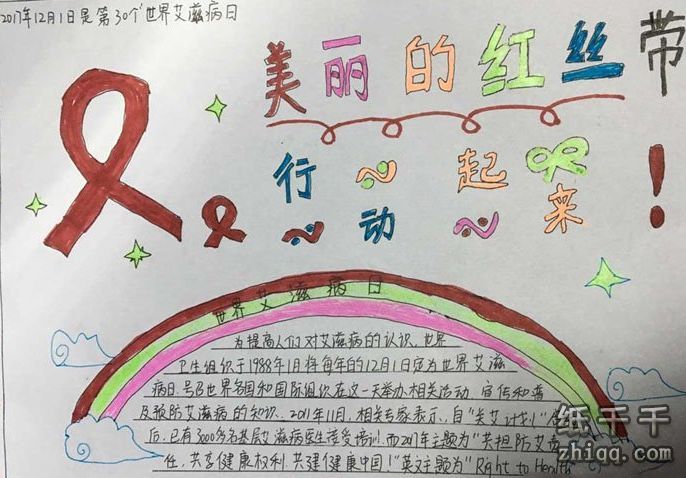 2017年12月1日是第30个世界艾滋病日
美丽的红丝带
行~起来!
~动~
世界艾滋病日
为提高人们对艾滋病的认识,世界
卫生组织于1988年1月将每年的12月1日定为世界艾滋
病日,号召世界各国和国际组织在这一天举办相关活动,宣传和普
及预防艾滋病的知识。2011年11月,相关专家表示,自"关艾计划"
后,已有3000多名基层艾滋病医生接受培训,而2017年主题为"共担防艾责
任,共享健康权利,共建健康中国!"英文主题为"Right to Health
纸千千
zhiqq.com